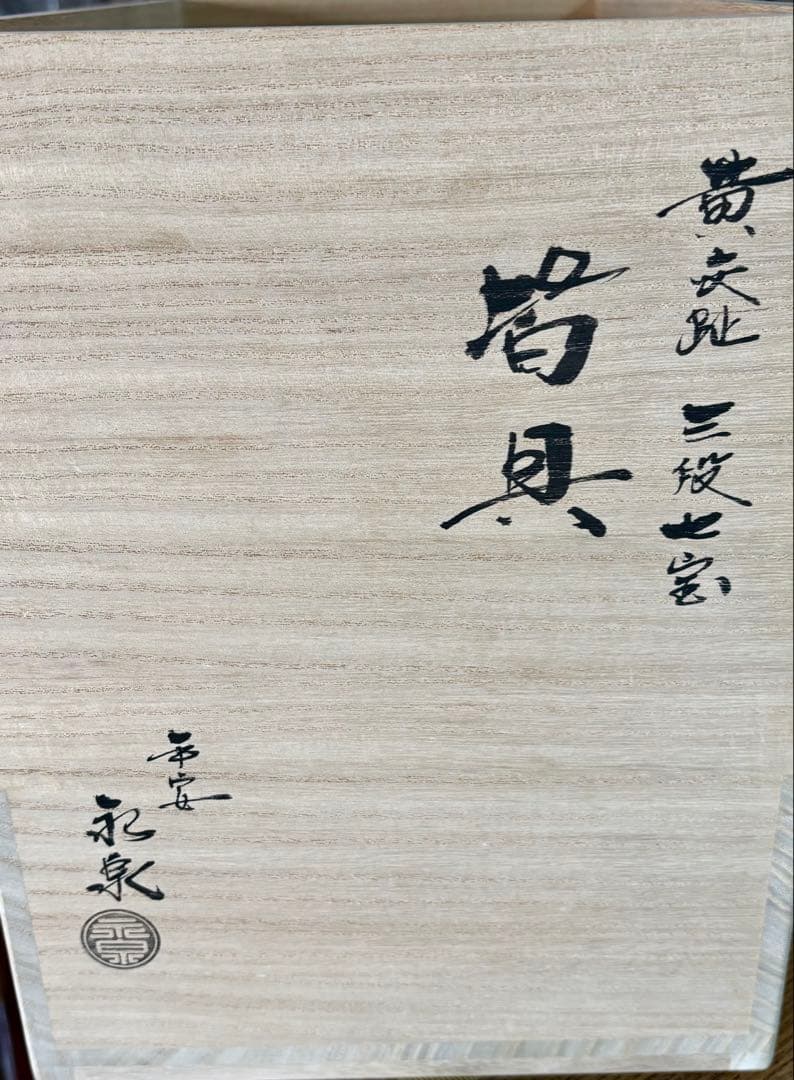 黄交趾 三段七宝
皆具
平安
紀泉